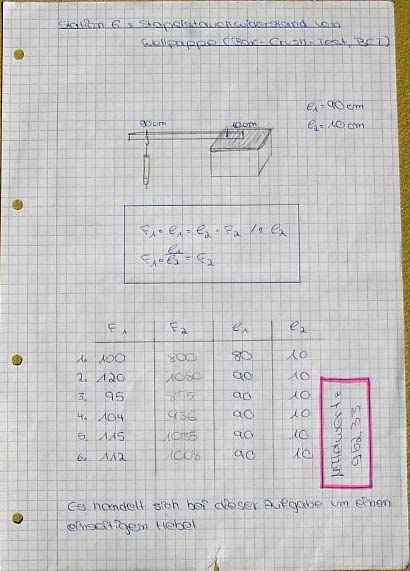 Station 6: Stapelstauchwiderstand von
Wellpappe (Box-Crush-Test, BCT)
l₁=90cm
l₂=10cm
90cm
10cm
F₁ · l₁ = l₂ · F₂ / : l₂
F₁ · l₁/l₂ = F₂
F₁ F₂ l₁ l₂
1. 100 800 80 10
2. 120 1080 90 10
3. 95 855 90 10
4. 104 936 90 10
5. 115 1035 90 10
6. 112 1008 90 10
Mittelwert:
952,33
Es handelt sich bei dieser Aufgabe um einen
einseitigem Hebel